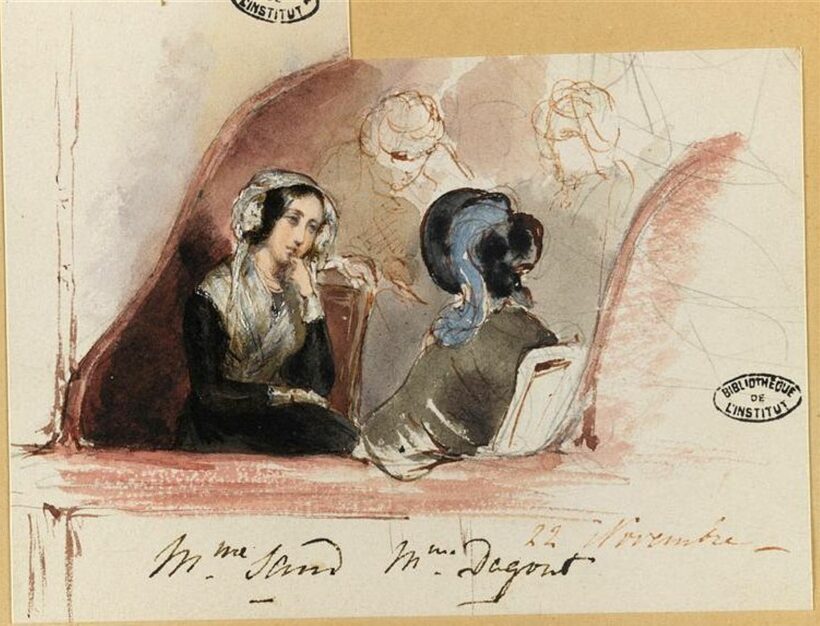 L'INSTITUT
BIBLIOTHÈQUE
DE
L'INSTITUT
22 Novembre
Mme Sand Mme Dagout